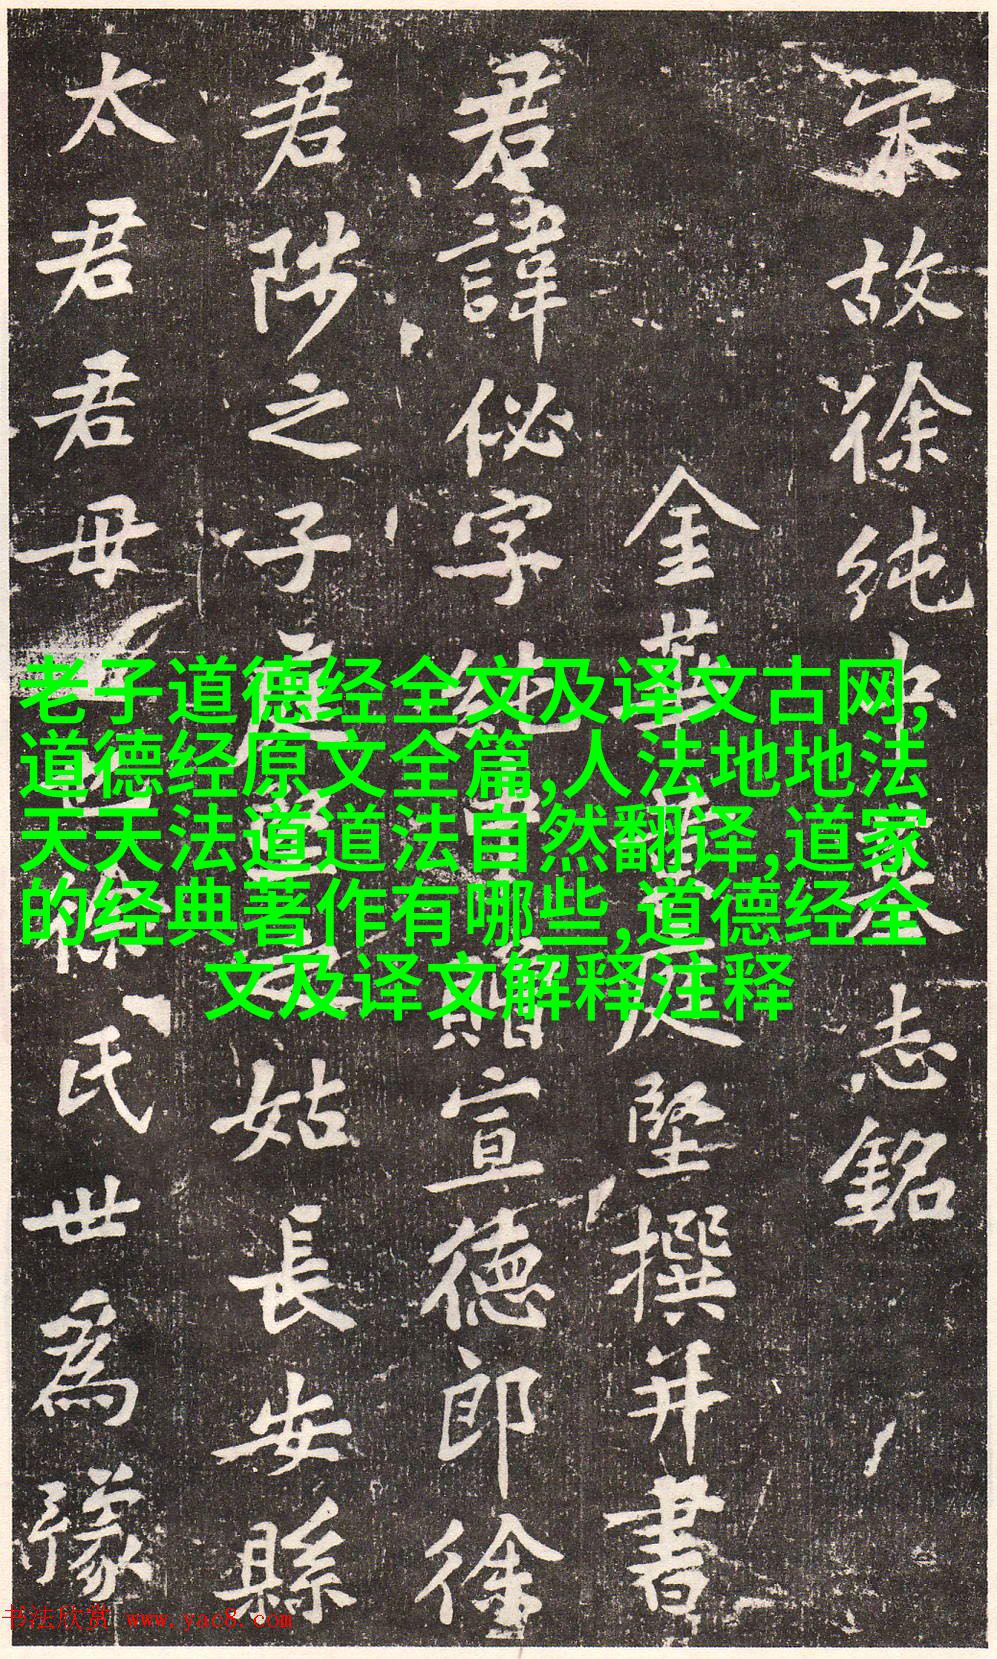 宋故徐纯中墓志銘
金華黄庭堅撰并書
君諱佖字純中贈宣德郎徐
君陟之子庭堅之姑長安縣
太君君毋
徐氏世為豫
老子道德经全文及译文古网,
道德经原文全篇,人法地地法
天天法道道法自然翻译,道家
的经典著作有哪些,道德经全
文及译文解释注释
书法欣赏 www.yac8.com